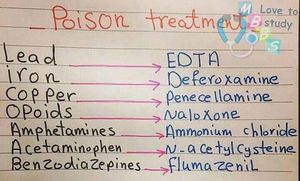 _ Poison treatment
Love to
study
MBBS
Lead → EDTA
iron → Deferoxamine
Copper → Penecellamine
OPoids → Naloxone
Amphetamines → Ammonium chloride
Acetaminophen → N-acetylcysteine
Benzodiazepines → flumazenil